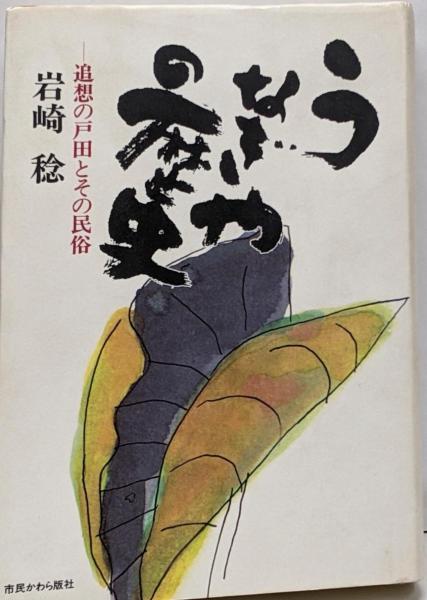 うなぎや
の歴史
―追想の戸田とその民俗
岩崎 稔
市民かわら版社